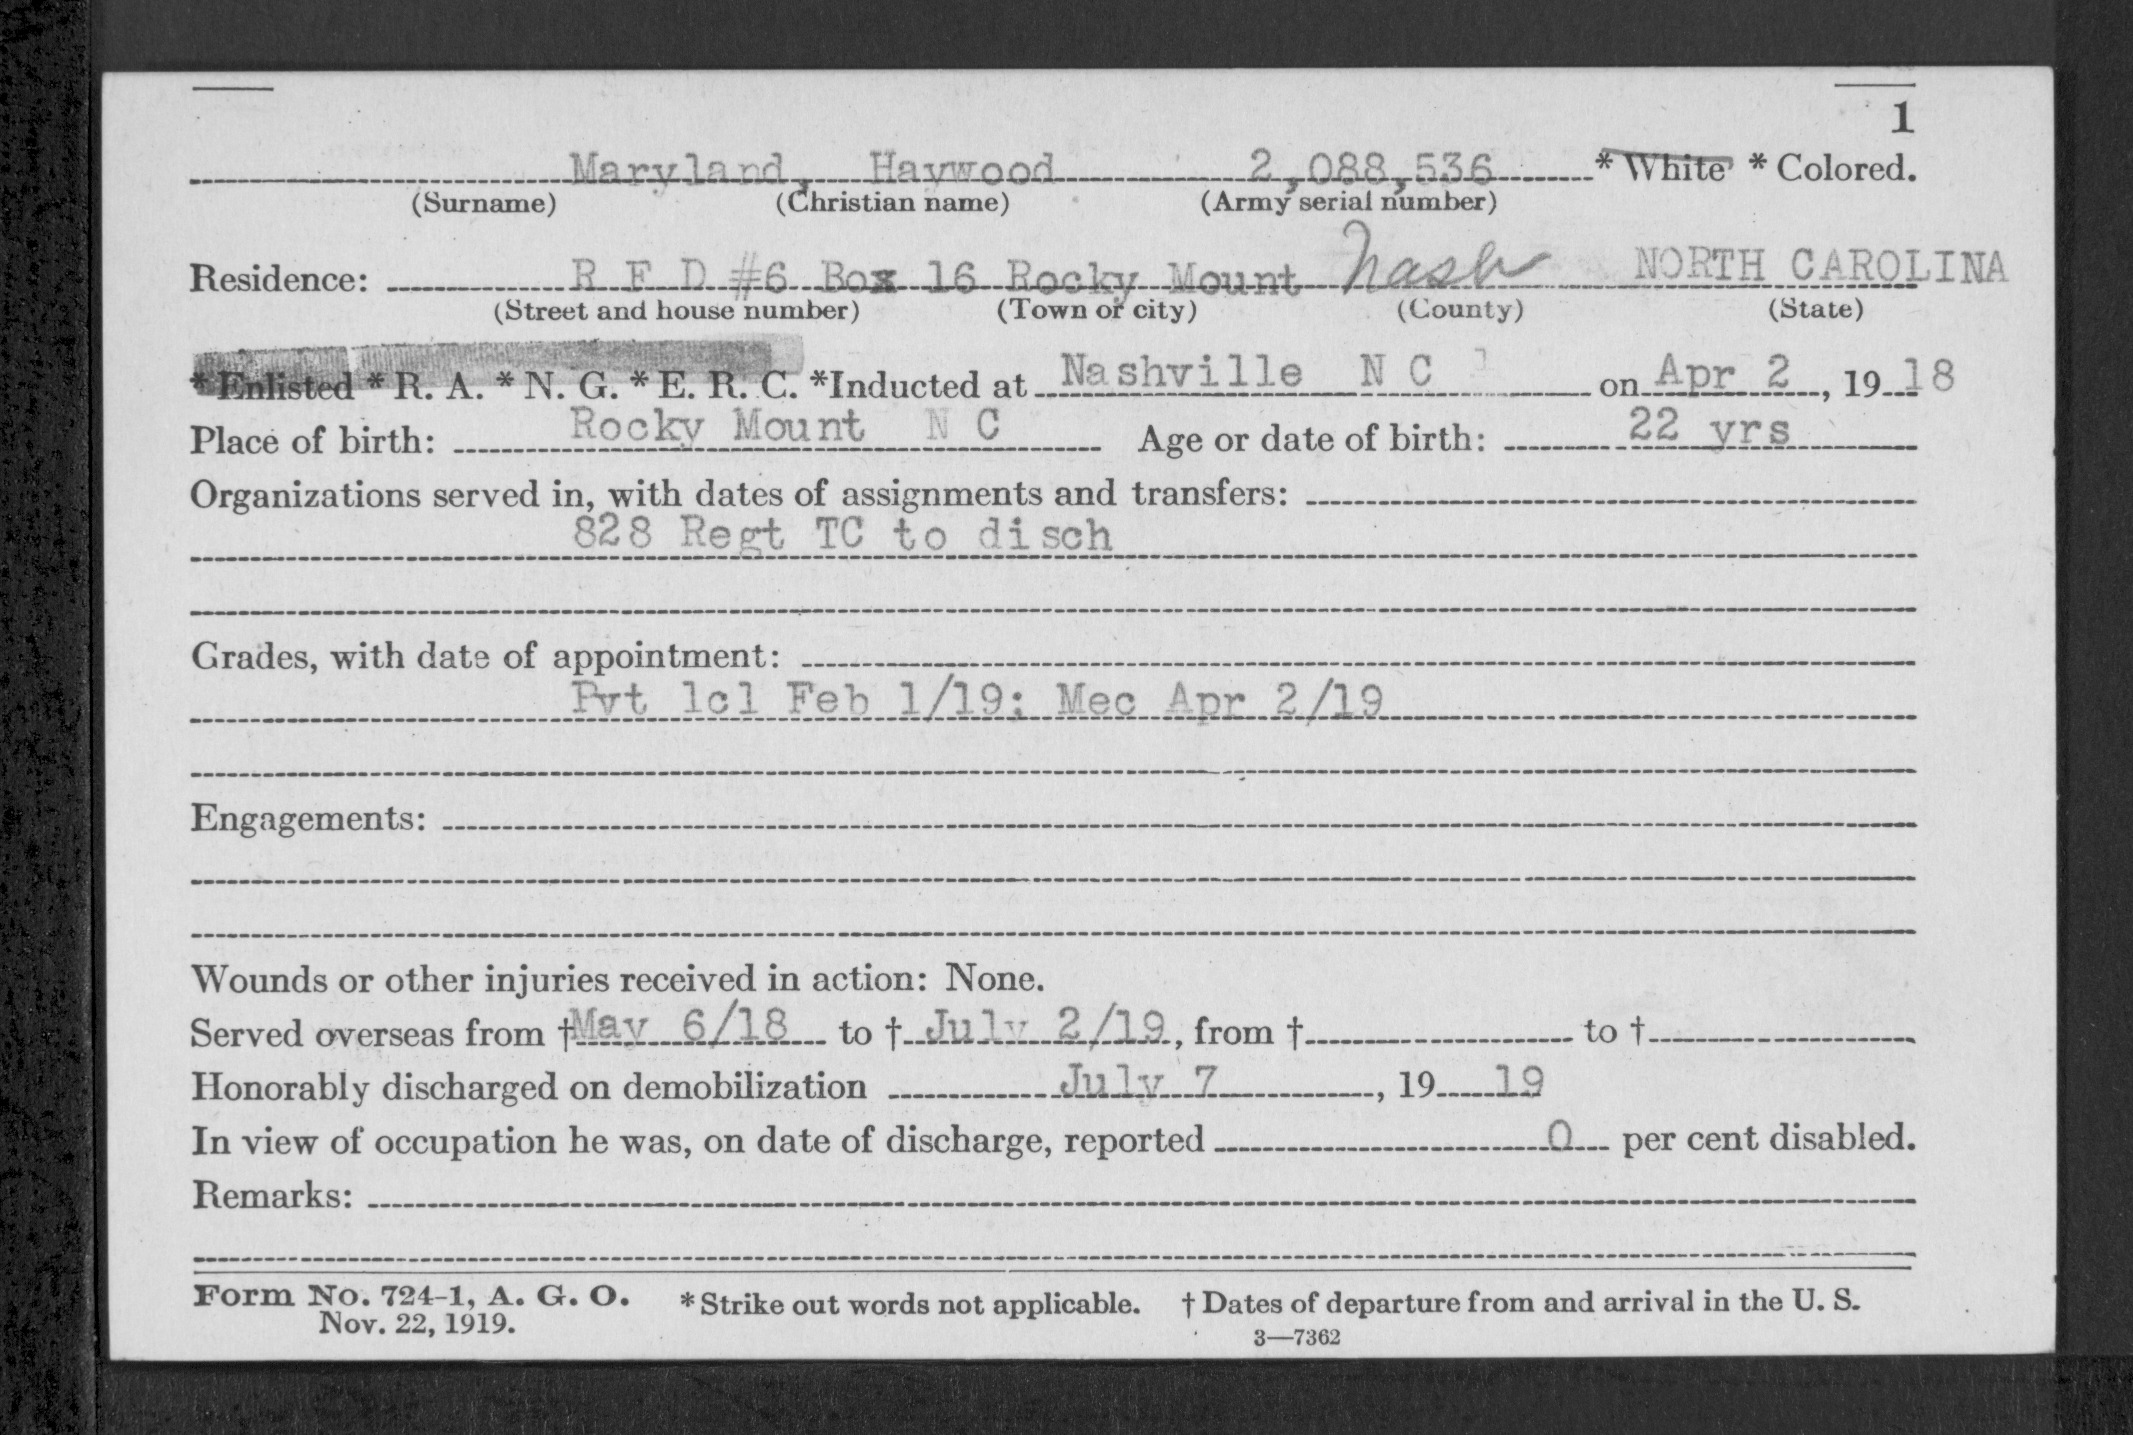 1
Maryland, Haywood 2,088,536 * White * Colored.
(Surname) (Christian name) (Army serial number)
Residence: R F D #6 Box 16 Rocky Mount Nash NORTH CAROLINA
(Street and house number) (Town or city) (County) (State)
* Enlisted * R. A. * N. G. * E. R. C. *Inducted at Nashville N C on Apr 2, 1918
Place of birth: Rocky Mount N C Age or date of birth: 22 yrs
Organizations served in, with dates of assignments and transfers:
828 Regt TC to disch
Grades, with date of appointment:
Pvt 1cl Feb 1/19; Mec Apr 2/19
Engagements:
Wounds or other injuries received in action: None.
Served overseas from † May 6/18 to † July 2/19, from † to †
Honorably discharged on demobilization July 7, 19 19
In view of occupation he was, on date of discharge, reported 0 per cent disabled.
Remarks:
Form No. 724-1, A. G. O. * Strike out words not applicable. † Dates of departure from and arrival in the U. S.
Nov. 22, 1919.
3—7362